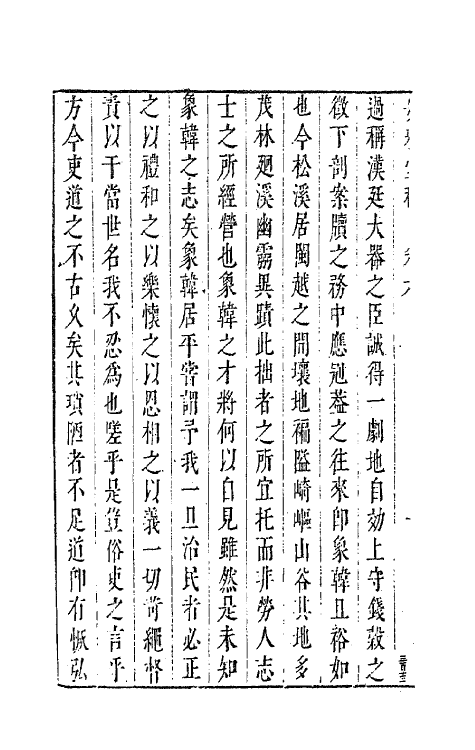 過稱漢廷大器之臣誠得一劇地自効上守錢穀之
徵下剖案牘之務中應冠葢之往來卽象韓且裕如
也今松溪居閩越之間壤地褊隘崎嶇山谷其地多
茂林廻溪幽靄異蹟此拙者之所宜托而非勞人志
士之所經營也象韓之才將何以自見雖然是未知
象韓之志矣象韓居平嘗謂予我一旦治民者必正
之以禮和之以樂懷之以恩相之以義一切苛繩督
責以干當世名我不忍爲也嗟乎是豈俗吏之言乎
方今吏道之不古久矣其瑣陋者不足道卽有恢弘